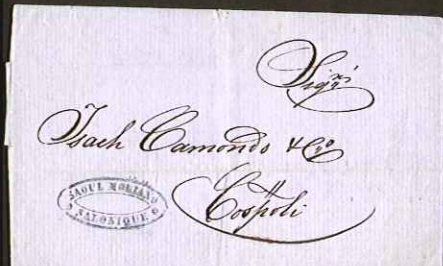 Sig.ri
Isach Camondo & Co
Cospoli
SAOUL MODIANO
SALONIQUE